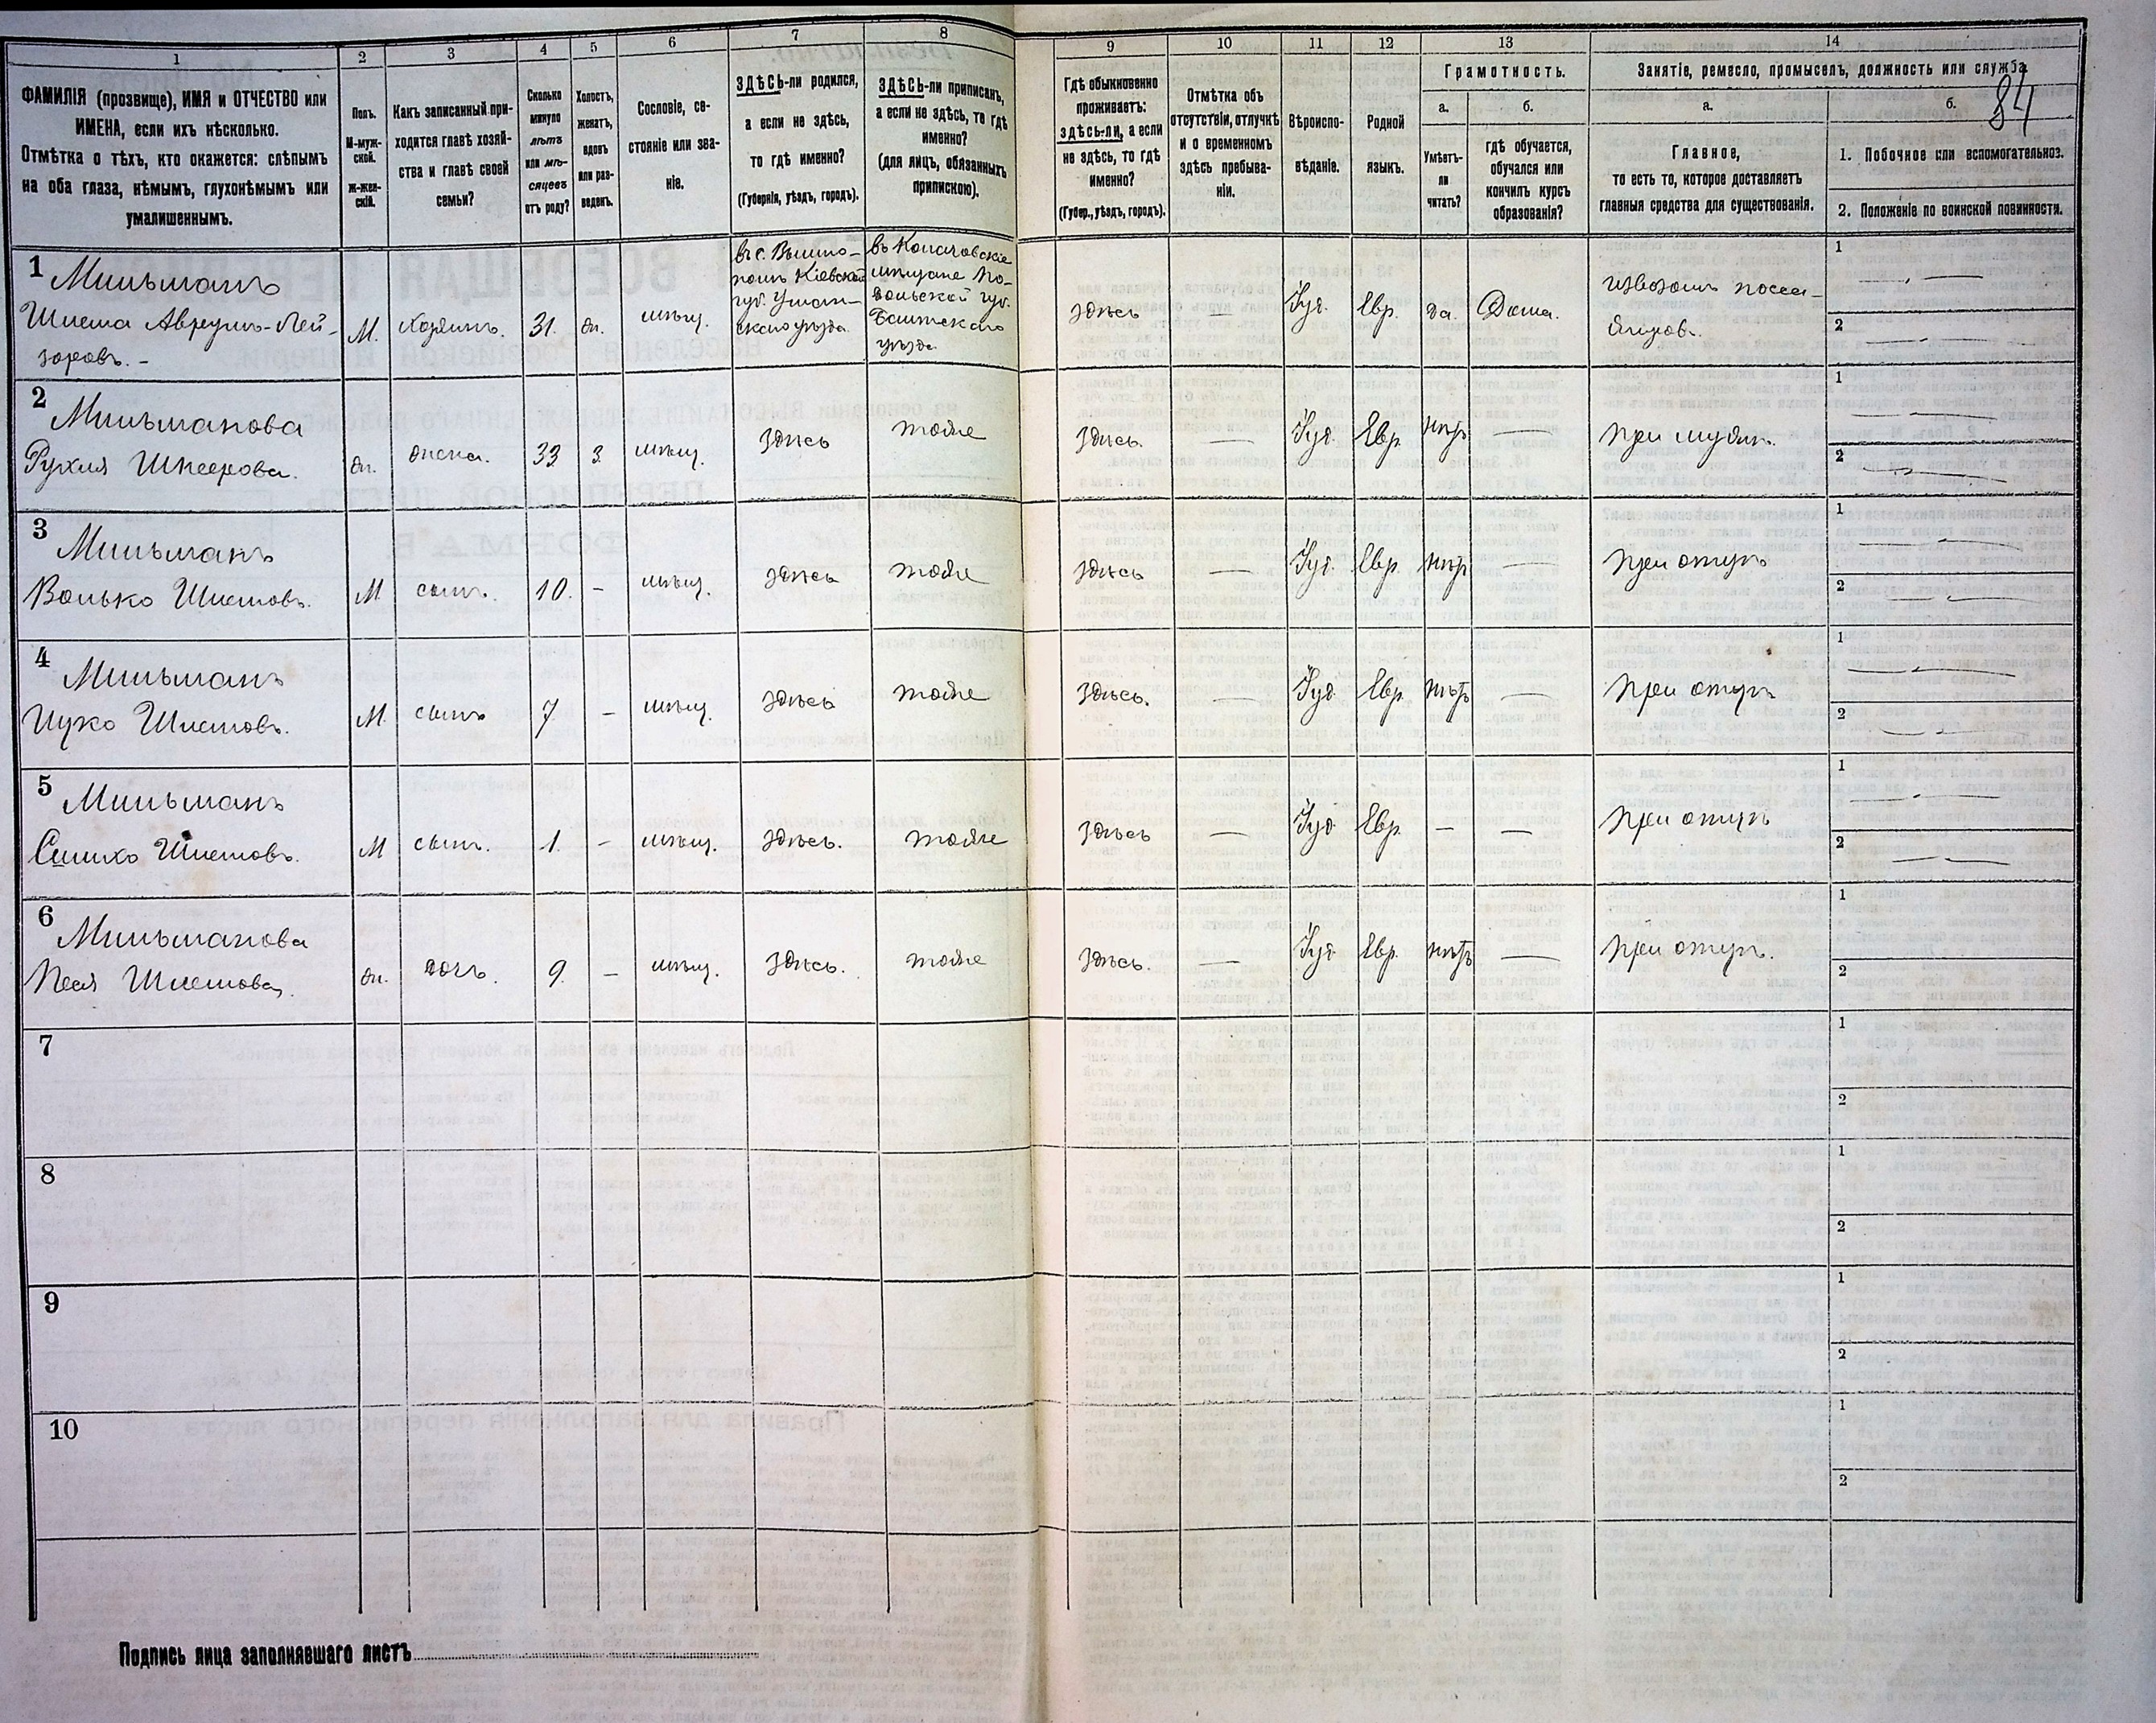 84
1
2
3
4
5
6
7
8
9
10
11
12
13
14
ФАМИЛІЯ (прозвище), ИМЯ и ОТЧЕСТВО или
ИМЕНА, если ихъ нѣсколько.
Отмѣтка о тѣхъ, кто окажется: слѣпымъ
на оба глаза, нѣмымъ, глухонѣмымъ или
умалишеннымъ.
Полъ.
М-муж-
ской.
Ж-жен-
скій.
Какъ записанный при-
ходится главѣ хозяй-
ства и главѣ своей
семьи?
Сколько
минуло
лѣтъ
или мѣ-
сяцевъ
отъ роду?
Холостъ,
женатъ,
вдовъ
или раз-
веденъ.
Сословіе, со-
стояніе или зва-
ніе.
ЗДѢСЬ-ли родился,
а если не здѣсь,
то гдѣ именно?
(Губернія, уѣздъ, городъ).
ЗДѢСЬ-ли приписанъ,
а если не здѣсь, то гдѣ
именно?
(для лицъ, обязанныхъ
припискою).
Гдѣ обыкновенно
проживаетъ:
здѣсь-ли, а если
не здѣсь, то гдѣ
именно?
(Губер., уѣздъ, городъ).
Отмѣтка объ
отсутствіи, отлучкѣ
и о временномъ
здѣсь пребыва-
ніи.
Вѣроиспо-
вѣданіе.
Родной
языкъ.
Грамотность.
а.
б.
Умѣетъ-
ли
читать?
гдѣ обучается,
обучался или
кончилъ курсъ
образованія?
Занятіе, ремесло, промыселъ, должность или служба.
а.
б.
Главное,
то есть то, которое доставляетъ
главныя средства для существованія.
1. Побочное или вспомогательное.
2. Положеніе по воинской повинности.
1 Мильманъ
Шлема Аврумъ-Лей-
зоровъ. -
М.
хозяинъ.
31.
ж.
мѣщ.
Кіевской
губ. Уман-
скаго уѣзда
мѣщане По-
дольской губ.
Балтскаго
уѣзда
здѣсь
—
Іуд.
Евр.
да.
Дома.
извозомъ
1 —
2 —
2 Мильманова
Рухля
ж.
жена.
33
з.
мѣщ.
здѣсь
тоже
здѣсь.
—
Іуд.
Евр.
нѣтъ
—
при мужѣ.
1 —
2 —
3 Мильманъ
Волько Шлемовъ.
М
сынъ.
10.
-
мѣщ.
здѣсь
тоже
здѣсь
—
Іуд.
Евр.
нѣтъ
—
при отцѣ
1 —
2 —
4 Мильманъ
Ицко Шлемовъ.
М.
сынъ
7.
-
мѣщ.
здѣсь
тоже
здѣсь.
—
Іуд.
Евр.
нѣтъ
—
при отцѣ
1 —
2 —
5 Мильманъ
Шлемовъ.
М
сынъ.
1.
-
мѣщ.
здѣсь.
тоже
здѣсь
—
Іуд.
Евр.
-
—
при отцѣ
1 —
2 —
6 Мильманова
Песя Шлемова.
ж.
дочь.
9.
-
мѣщ.
здѣсь.
тоже
здѣсь.
—
Іуд.
Евр.
нѣтъ
—
при отцѣ.
1
2
7
1
2
8
1
2
9
1
2
10
1
2
Подпись лица заполнявшаго листъ